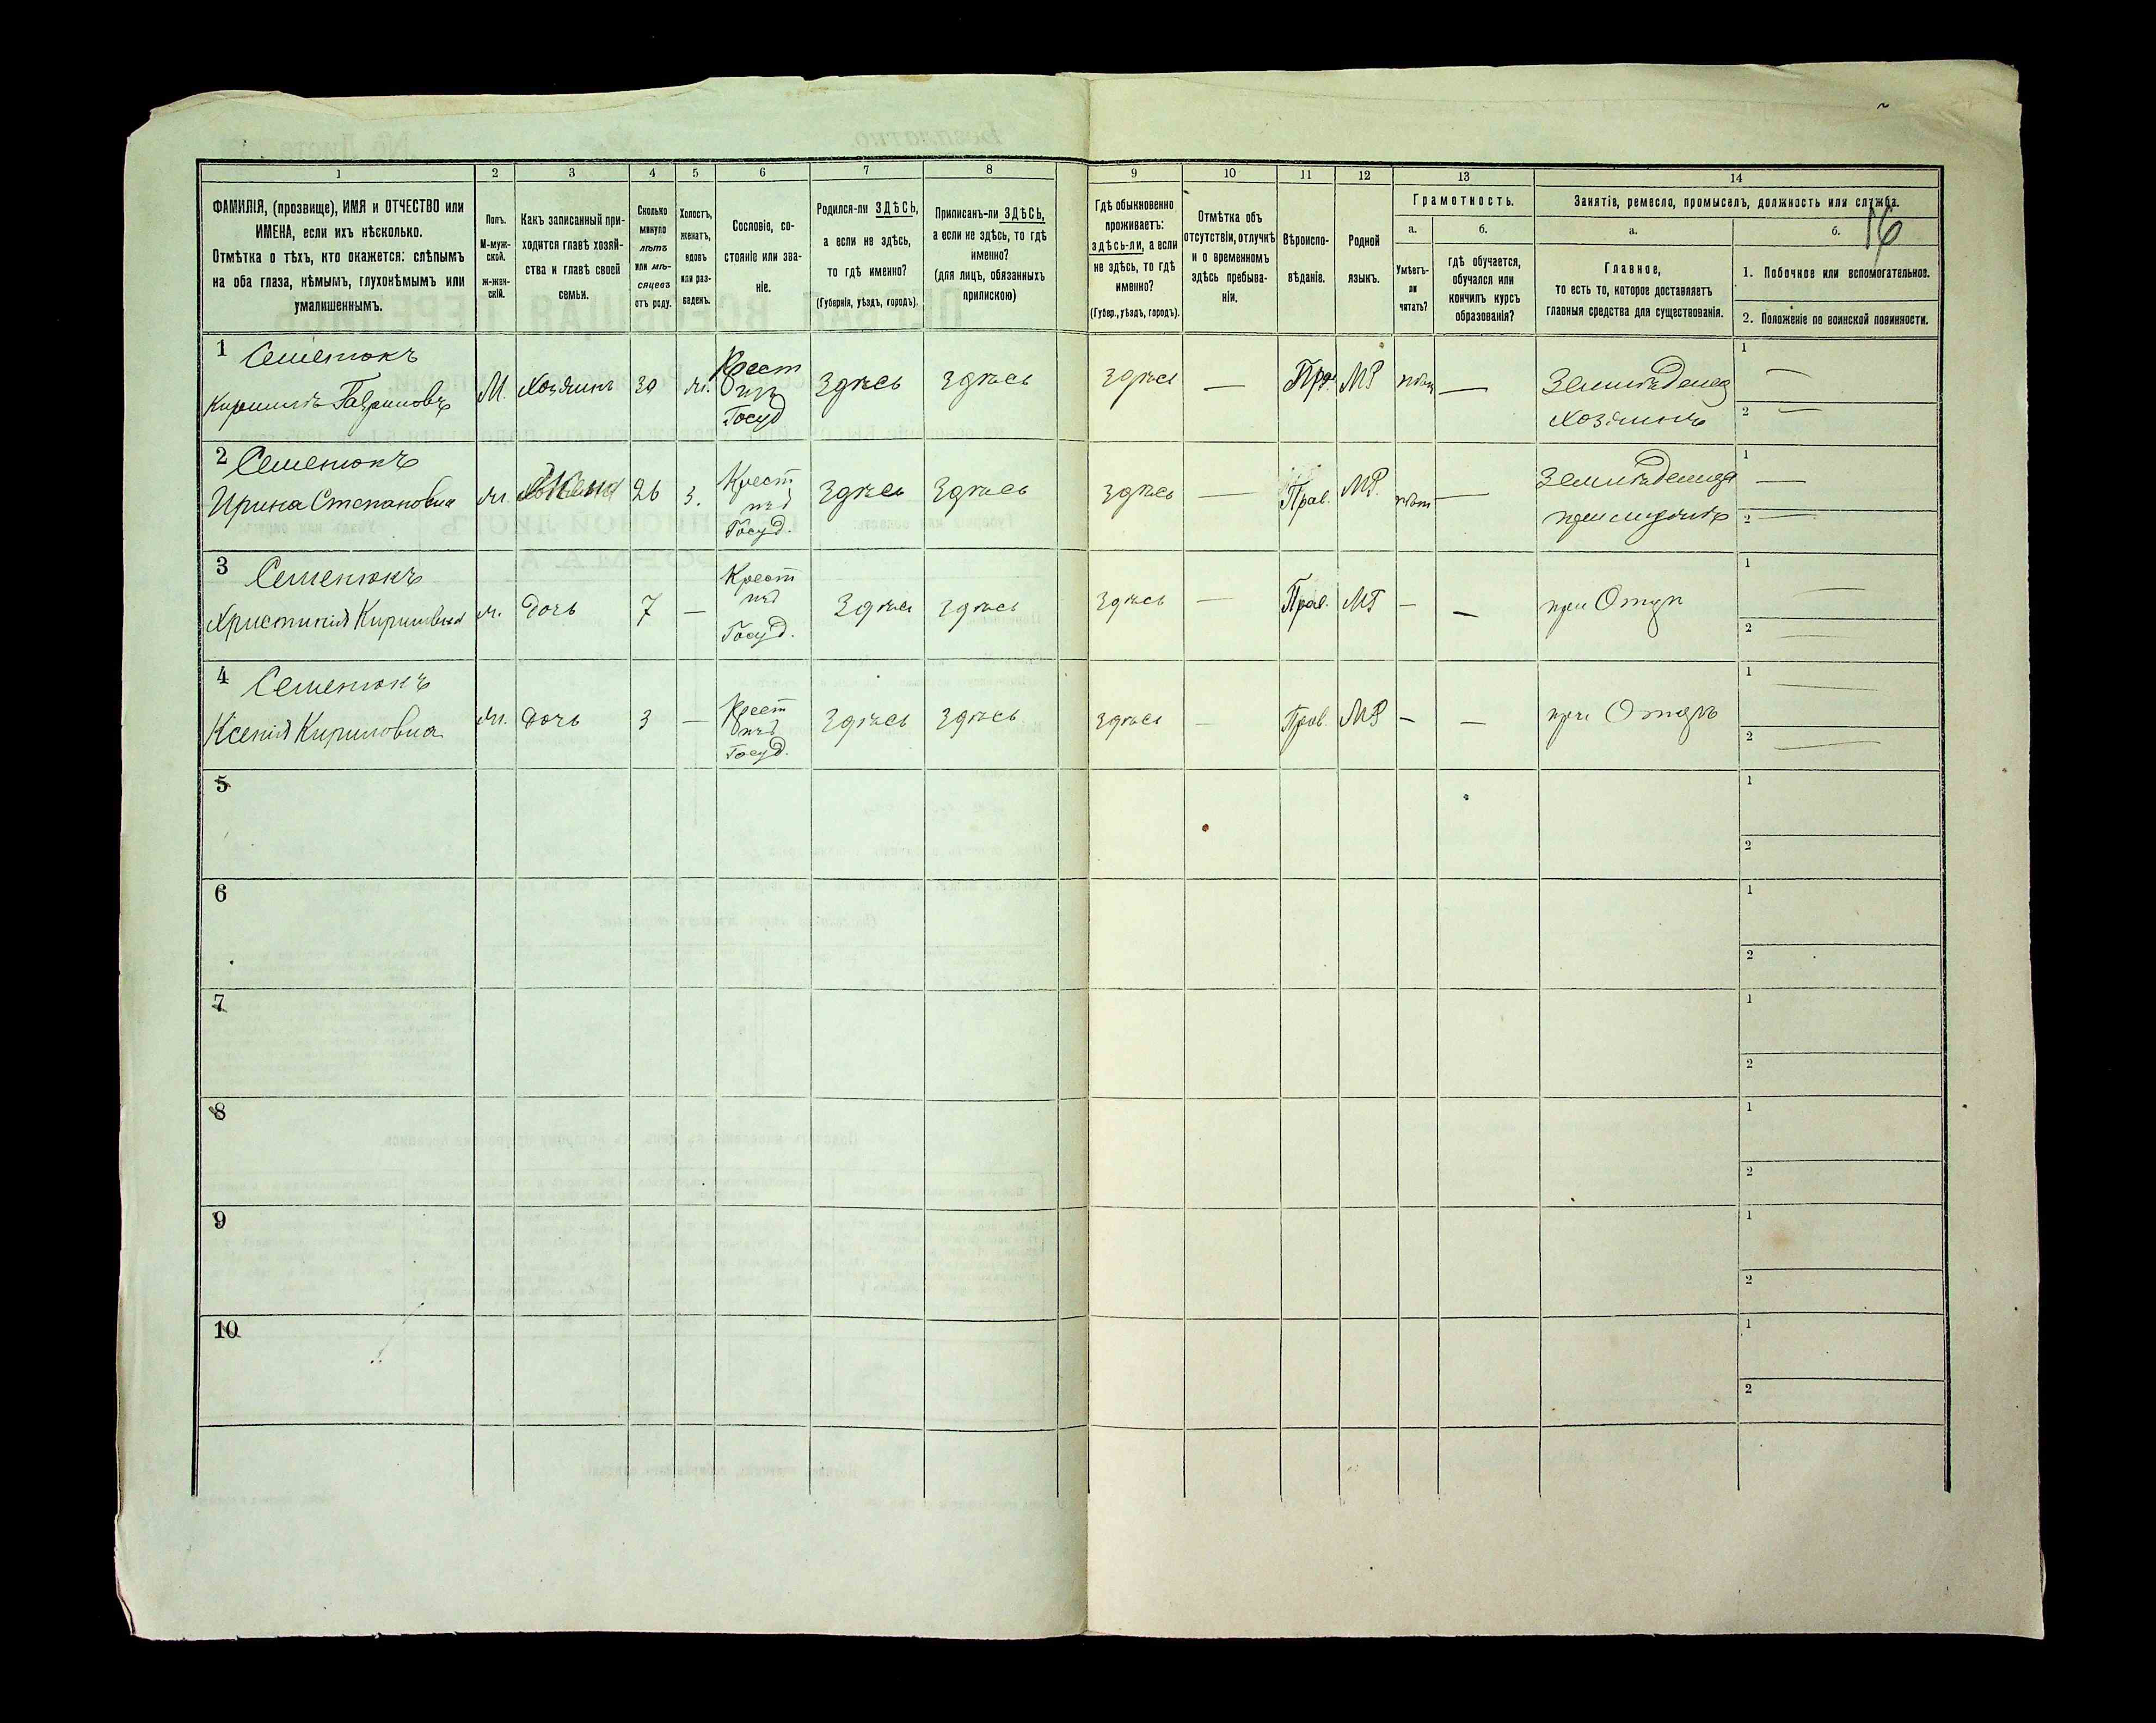 1 2 3 4 5 6 7 8 9 10 11 12 13 14
ФАМИЛІЯ, (прозвище), ИМЯ и ОТЧЕСТВО или
ИМЕНА, если ихъ нѣсколько.
Отмѣтка о тѣхъ, кто окажется: слѣпымъ
на оба глаза, нѣмымъ, глухонѣмымъ или
умалишеннымъ.
Полъ.
М-муж-
ской.
ж-жен-
скій.
Какъ записанный при-
ходится главѣ хозяй-
ства и главѣ своей
семьи.
Сколько
минуло
лѣтъ
или мѣ-
сяцевъ
отъ роду.
Холостъ,
женатъ,
вдовъ
или раз-
веденъ.
Сословіе, со-
стояніе или зва-
ніе.
Родился-ли ЗДѢСЬ,
а если не здѣсь,
то гдѣ именно?
(Губернія, уѣздъ, городъ).
Приписанъ-ли ЗДѢСЬ,
а если не здѣсь, то гдѣ
именно?
(для лицъ, обязанныхъ
припискою)
Гдѣ обыкновенно
проживаетъ:
здѣсь-ли, а если
не здѣсь, то гдѣ
именно?
(Губер., уѣздъ, городъ).
Отмѣтка объ
отсутствіи, отлучкѣ
и о временномъ
здѣсь пребыва-
ніи.
Вѣроиспо-
вѣданіе.
Родной
языкъ.
Грамотность.
а.
Умѣетъ-
ли
читать?
б.
гдѣ обучается,
обучался или
кончилъ курсъ
образованія?
Занятіе, ремесло, промыселъ, должность или служба.
а.
Главное,
то есть то, которое доставляетъ
главныя средства для существованія.
б.
16
1. Побочное или вспомогательное.
2. Положеніе по воинской повинности.
1 Семенюкъ
Кирилъ Гавриловъ М. Хозяинъ 30 ж. Крест изъ Госуд Здѣсь Здѣсь Здѣсь — Пра. МР нѣт — Землевделец хозяинъ 1 — 2 —
2 Семенюкъ
Ирина Степановна ж. Жена 26 з. Крест изъ Госуд. Здѣсь Здѣсь Здѣсь — Прав. МР. нѣт — 1 — 2 —
3 Семенюкъ
Христинія Кириловна ж. дочь 7 — Крест изъ Госуд. Здѣсь Здѣсь Здѣсь — Прав. МР — — при Отцѣ 1 — 2 —
4 Семенюкъ
Ксенія Кириловна ж. дочь 3 — Крест изъ Госуд. Здѣсь Здѣсь Здѣсь — Прав. МР — — при Отцѣ 1 — 2 —
5 1
2
6 1
2
7 1
2
8 1
2
9 1
2
10 1
2